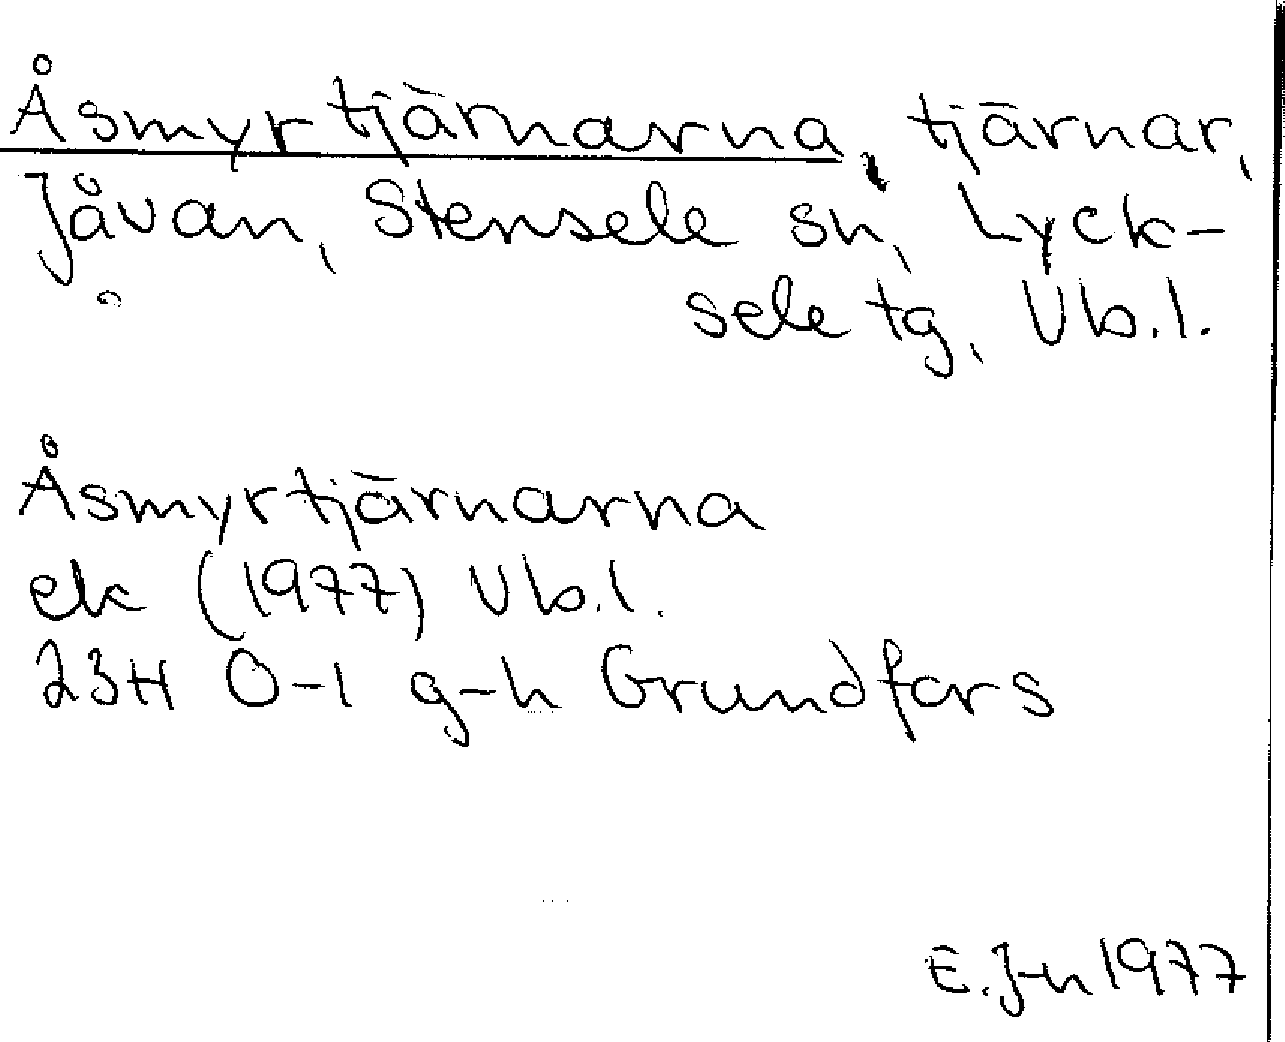 Åsmyrtjärnarna, tjärnar,
Jåvan, Stensele sn, Lyck-
sele tg, Vb.l.
Åsmyrtjärnarna
ek (1977) Vb.l.
23H 0-1 g-h Grundfors
E.J-n 1977